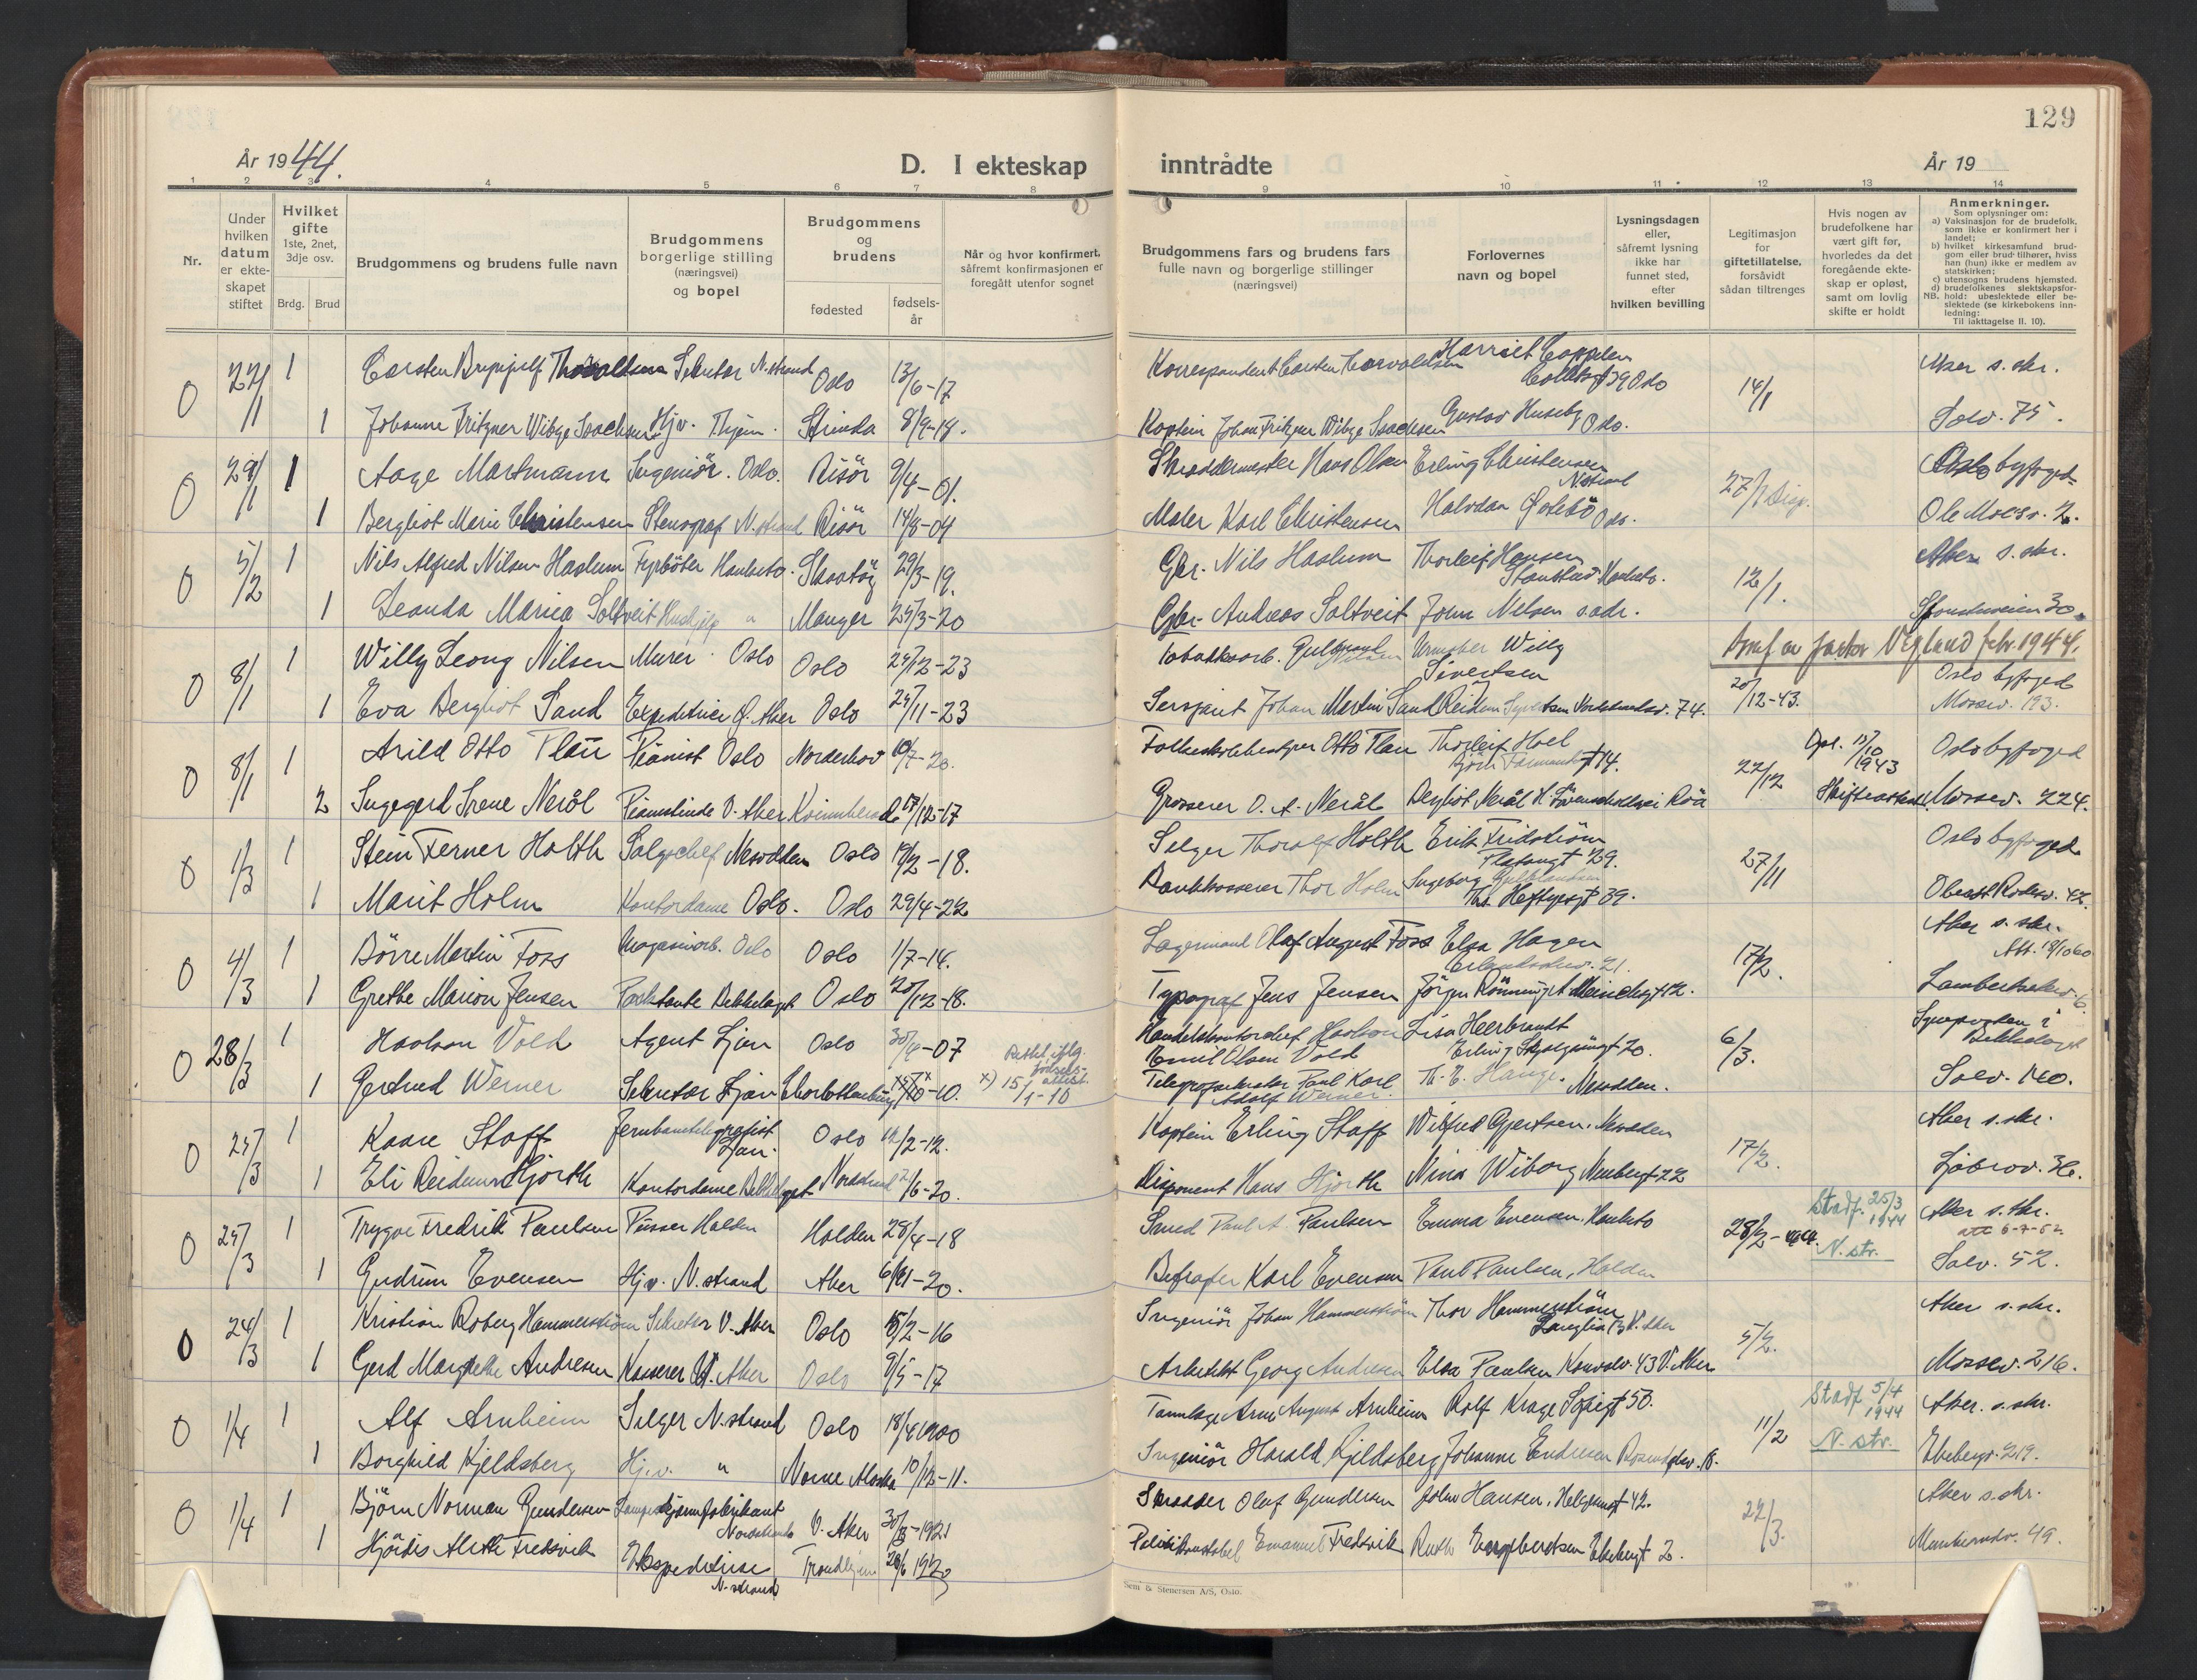 129
År 1944.
D. I ekteskap inntrådte
År 19
1 2 3 4 5 6 7 8 9 10 11 12 13 14
Nr.
Under hvilken datum er ekteskapet stiftet
Hvilket gifte
1ste, 2net, 3dje osv.
Brdg. Brud
Brudgommens og brudens fulle navn
Brudgommens borgerlige stilling (næringsvei) og bopel
Brudgommens og brudens
fødested
fødsels-år
Når og hvor konfirmert, såfremt konfirmasjonen er foregått utenfor sognet
Brudgommens fars og brudens fars fulle navn og borgerlige stillinger (næringsvei)
Forlovernes navn og bopel
Lysningsdagen eller, såfremt lysning ikke har funnet sted, efter hvilken bevilling
Legitimasjon for giftetillatelse, forsåvidt sådan tiltrenges
Hvis nogen av brudefolkene har vært gift før, hvorledes da det foregående ekteskap er opløst, samt om lovlig skifte er holdt
Anmerkninger.
Som oplysninger om:
a) Vaksinasjon for de brudefolk, som ikke er konfirmert her i landet;
b) hvilket kirkesamfund brudgom eller brud tilhører, hviss han (hun) ikke er medlem av statskirken;
c) utensogns brudens hjemsted.
d) brudefolkenes slektskapsforhold: ubeslektede eller beslektede (se kirkebokens innledning:
NB.
Til iakttagelse II. 10).
0 22/1 1 Carsten Brynjulf Thorvaldsen Sekretær N.strand Oslo 13/6-17 Korrespondent Carsten Thorvaldsen Harriet Coppelen 39 Oslo 14/1 Aker s. skr.
1 Johanne Fritzner Wibye Isachsen Hjv. Thjem. Strinda 8/9-18. Kaptein Johan Fritzner Wibye Isachsen Gustav Huseby Oslo. Solv. 75.
0 29/1 1 Aage Martmann Ingeniør. Oslo. Risör 9/4-01. Skreddermester Hans Olsen Erling Christensen N.strand 27/1 disp. Oslo byfoged
1 Bergliot Marie Christensen Stenograf N.strand Risör 14/8-04 Maler Karl Christensen Halvdan Ølebö Oslo. Ole Moesv. 2.
0 5/2 1 Nils Alfred Nilsen Haslum Fyrböter Hauketo. Skaatöy 29/3-19. Gbr. Nils Haslum Thorleif Hansen Hauketo. 12/1. Aker s. skr.
1 Leanda Marie Soltveit Hushjelp " Manger 25/3-20 Gbr. Andreas Soltveit John Nelsen s.adr. 30.
0 8/1 1 Willy Leong Nilsen Murer. Oslo Oslo 24/12-23 Tobakksarb. Gulbrand Nilsen Urmaker Willy Sivertsen Oslo byfoged
febr. 1944.
1 Eva Bergliot Sand Expeditrice Ø. Aker Oslo 24/11-23 Sersjant Johan Martin Sand Reidun 74. 20/12-43. Mossev. 193.
0 8/1 1 Arild Otto Plau Pianist Oslo Norderhov 10/7-20. Otto Plau Thorleif Hoel 14. 22/12 Opl. 15/10 1943 Oslo byfoged
2 Ingegerd Irene Neröl Pianistinde V. Aker Kvinnherad 17/12-17 Grosserer O. A. Neröl Bergliot Neröl Röa Skifteattest. Mossev. 224.
0 1/3 1 Stein Ferner Holth Salgschef Nesodden Oslo 19/2-18. Selger Thoralf Holth Erik Fridström Platougt 29. 27/11 Oslo byfoged
1 Marit Holm Kontordame Oslo. Oslo 29/4-22 Bankkasserer Thor Holm Ingeborg Gulbrandsen Th. Heftyesgt 39. Oberst Rodesv. 42.
0 4/3 1 Börre Martin Foss Magasinarb. Oslo Oslo 1/7-14. Lagermand Olaf August Foss Elsa Hagen 21. 17/2. Aker s. skr.
1 Grethe Marion Jensen Bekkelaget Oslo 20/12-18. Typograf Jens Jensen Jörgen Rönning 12. Lambertseterv. 6
0 28/3 1 Haakon Vold Agent Ljan Oslo 30/4-07 Handelskontorchef Haakon Emil Olsen Vold Lisa Heerbrandt Erling Skjalgsöngt 20. 6/3. Bekkelaget
1 Gertrud Werner Sekretær Ljan Charlottenburg 15/10-10. x) 15/1-10 Rettet iflg. fødselsattest. Paul Karl Adolf Werner. Th. E. Hauge. Nesodden. Solv. 140.
0 25/3 1 Kaare Staff Jernbanetelegrafist Ljan. Oslo 12/2-12. Kaptein Erling Staff Wilfred Gjertsen. Nesodden 17/2. Aker s. skr.
1 Eli Reidun Hjorth Kontordame Bekkelaget Nordstrand 2/6-20. Disponent Hans Hjorth Nina Wiborg Neubergt 22 Ljabrov. 36.
0 25/3 1 Trygve Fredrik Paulsen Pusser Halden Halden 28/4-18 Smed Paul A. Paulsen Emma Evensen, Hauketo 28/2-44. Stadf. 25/3 1944 N. str. Aker s. skr.
att 6-7-62
1 Gudrun Evensen Hjv. N.strand Aker 6/11-20. Karl Evensen Paul Paulsen, Halden Solv. 52.
0 24/3 1 Kristian Roberg Hammerström Sekretær V. Aker Oslo 15/2-16 Ingeniör Johan Hammerström Thor Hammerström V. Aker 5/2. Aker s. skr.
1 Gerd Margrethe Andresen Kasserer V. Aker Oslo 9/5-17 Arkitekt Georg Andresen Elsa Paulsen Konvalv. 43 V. Aker Mossev. 216.
0 1/4 1 Alf Arnheim Selger N.strand Oslo 18/4 1900 Tannlæge Arne August Arnheim Rolf Krage Sofiegt 50. 11/2 Stadf. 5/4 1944 N. str. Aker. s. skr.
1 Borghild Kjeldsberg Hj.v. " Nome Alaska 10/12-11. Ingeniör Harald Kjeldsberg Johanne Endresen 18. Ekebergv. 219.
0 1/4 1 Björn Norman Gundersen Lampeskjermfabrikant Nordstrand V. Aker 30/3-1921 Skredder Olaf Gundersen John Hansen, Helgesensgt 42. 22/3. Aker s. skr.
1 Hjördis Alethe Fredsvik Ekspeditrise N.strand Trondhjem 28/6 1920 Politikonstabel Emanuel Fredsvik Ruth Engebretsen Ekebergt 2. Munkerudv. 49.
Sem & Stenersen A/S, Oslo.